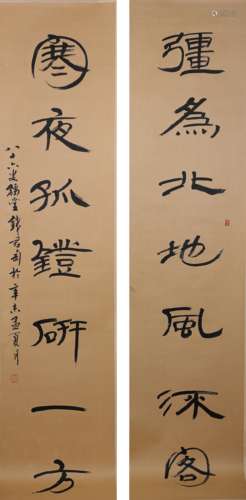 彊為北地風深閣
寒夜孤鐙研一方
八十六叟豫堂錢君匋於辛未孟夏月